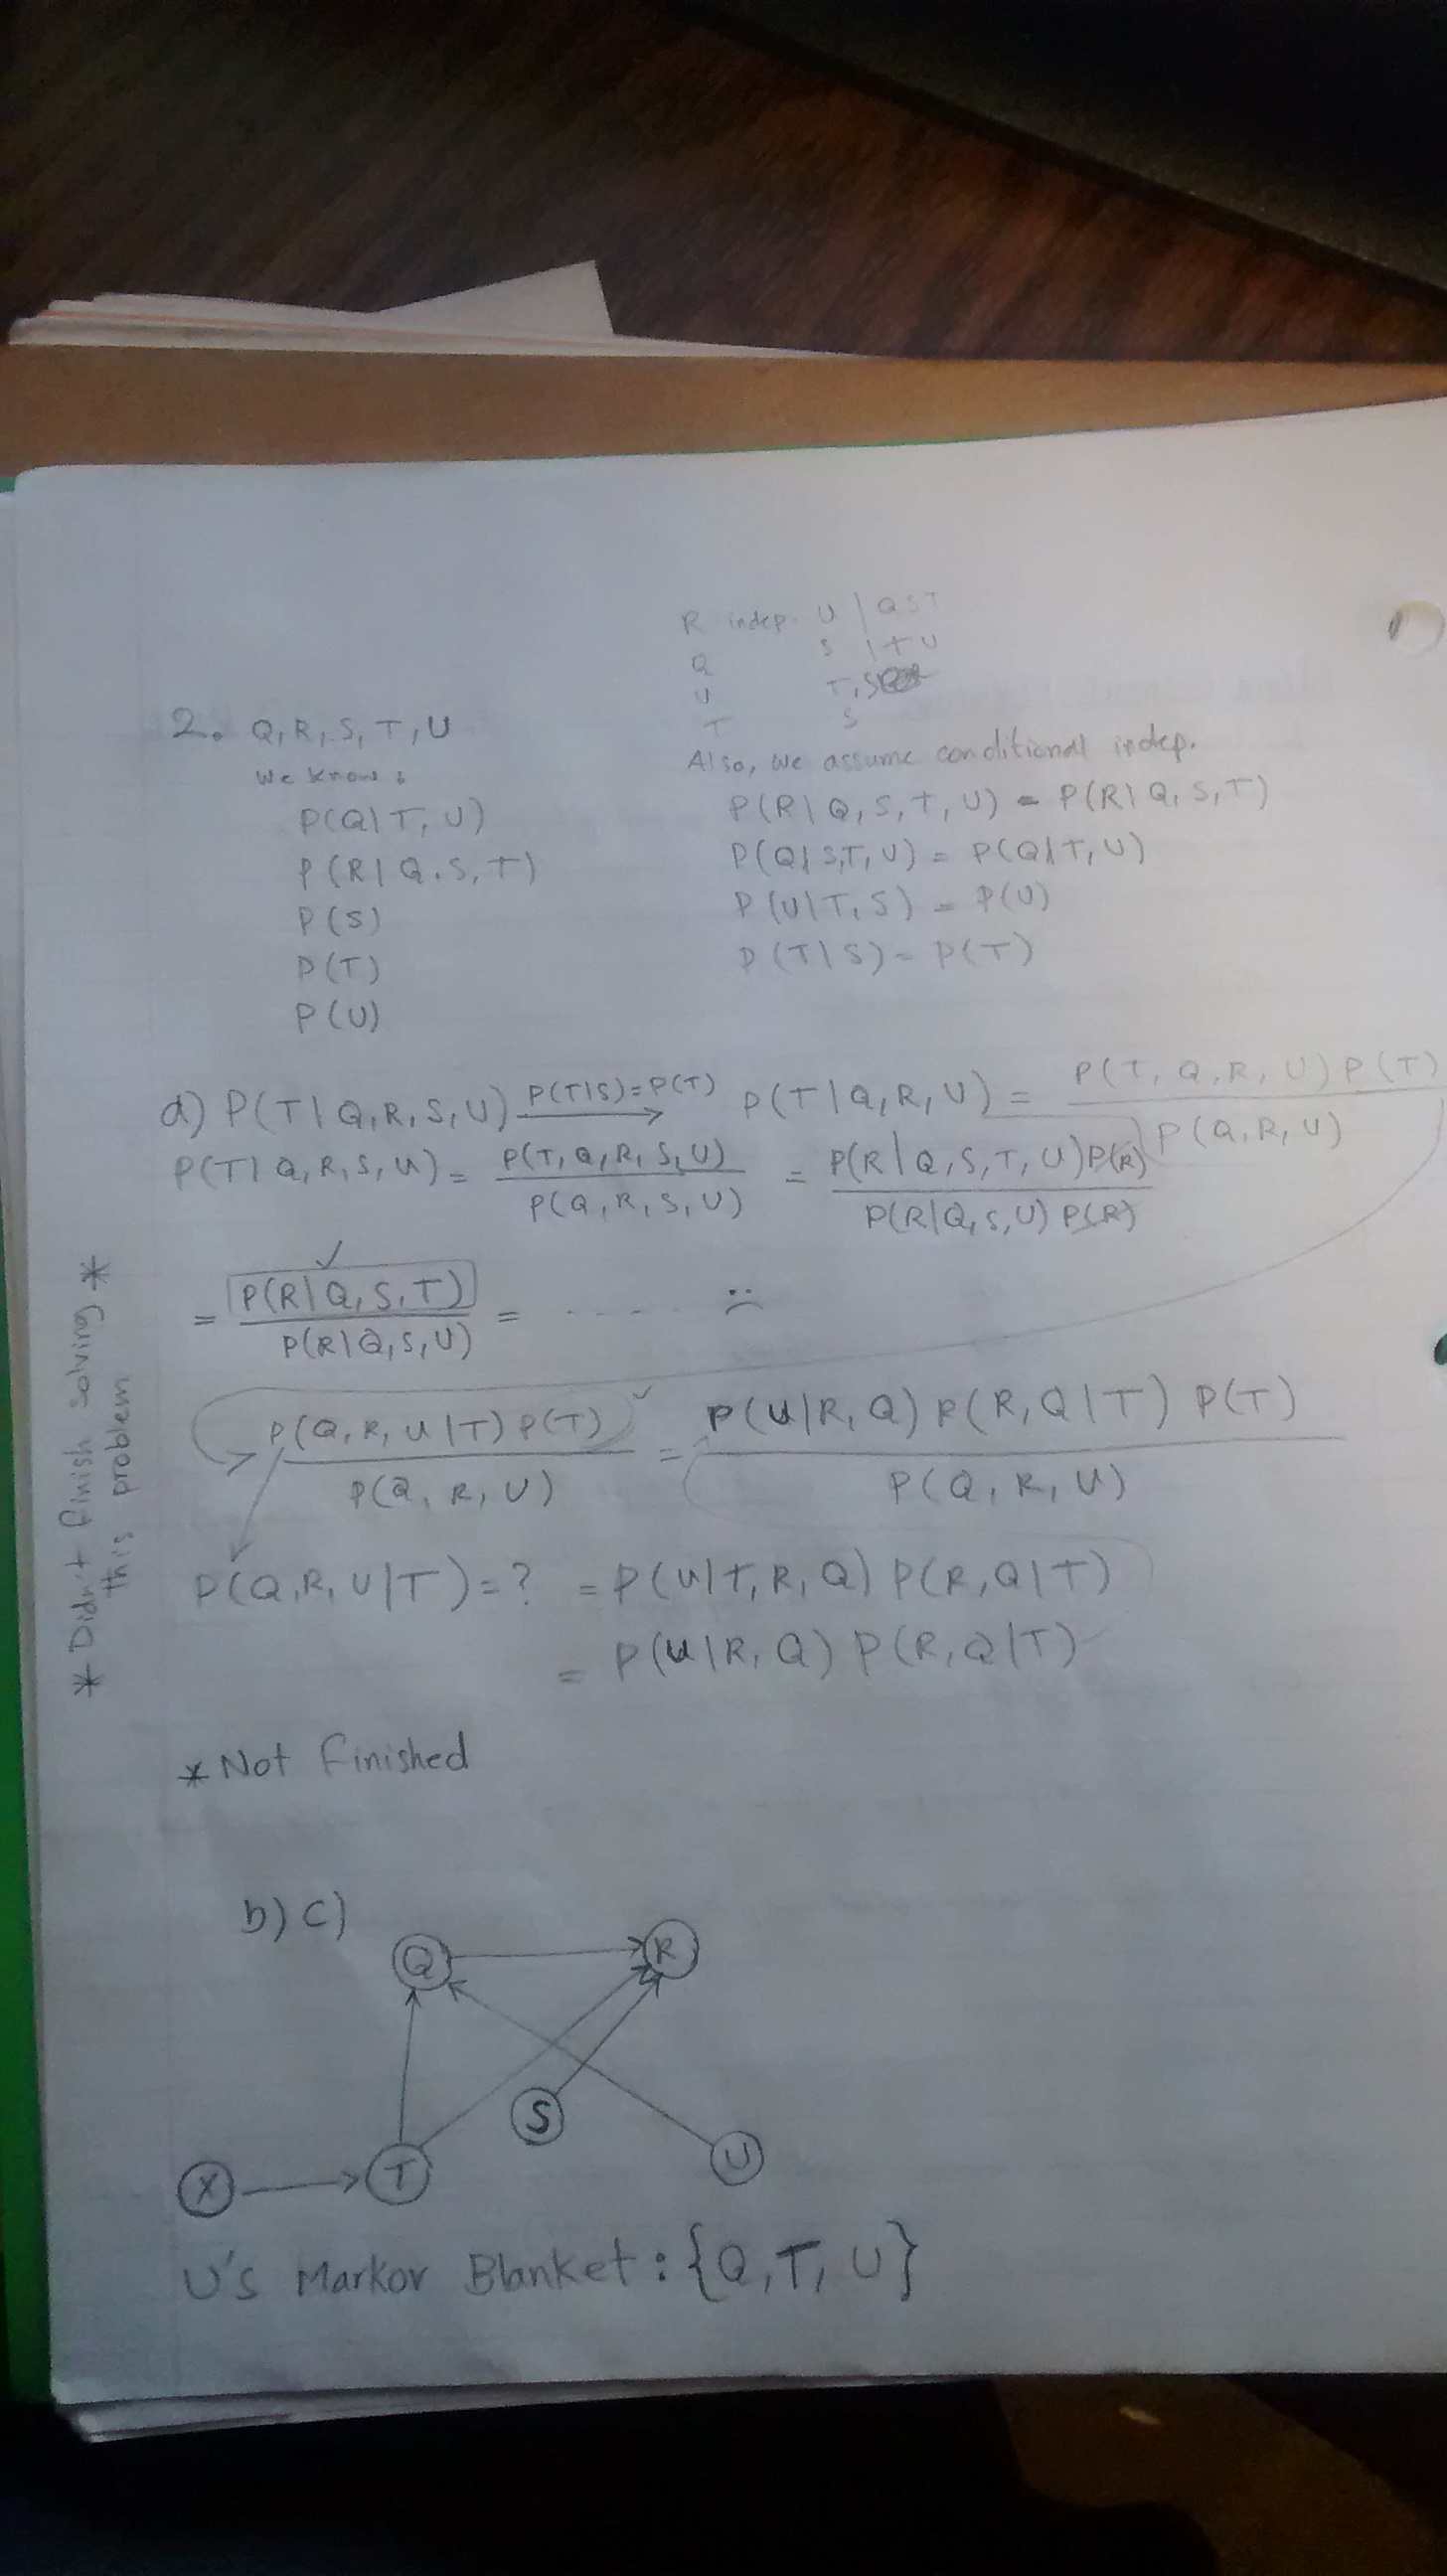 R indep. U | Q S T
Q S | T U
U T, S
T S
2. Q, R, S, T, U
We know:
P(Q|T, U)
P(R|Q, S, T)
P(S)
P(T)
P(U)
Also, we assume conditional indep.
P(R|Q, S, T, U) = P(R|Q, S, T)
P(Q|S,T, U) = P(Q|T, U)
P(U|T, S) = P(U)
P(T|S) = P(T)
a) P(T|Q,R,S,U) P(T|S)=P(T) → P(T|Q,R,U) = P(T,Q,R,U)P(T) / P(Q,R,U)
P(T|Q,R,S,U) = P(T,Q,R,S,U) / P(Q,R,S,U) = P(R|Q,S,T,U)P(R) / P(R|Q,S,U)P(R)
= P(R|Q,S,T) ✓ / P(R|Q,S,U) = - - - - - :(
P(Q,R,U|T)P(T) ✓ / P(Q,R,U) = P(U|R,Q)P(R,Q|T)P(T) / P(Q,R,U)
P(Q,R,U|T) = ? = P(U|T,R,Q)P(R,Q|T)
= P(U|R,Q)P(R,Q|T)
* Didn't finish solving *
this problem
* Not finished
b) c)
Q
R
S
X
T
U
U's Markov Blanket: {Q, T, U}